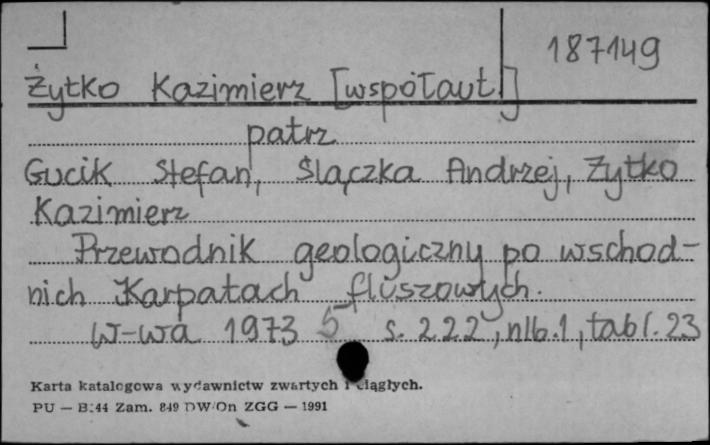 187149
Żytko Kazimierz [współaut.]
patrz
Gucik Stefan, Ślączka Andrzej, Żytko
Kazimierz
Przewodnik geologiczny po wschod-
nich Karpatach fliszowych.
W-wa 1973 5 s. 222, nlb. 1, tabl. 23
Karta katalogowa wydawnictw zwartych i ciągłych.
PU — B.44 Zam. 849 DW/On ZGG — 1991